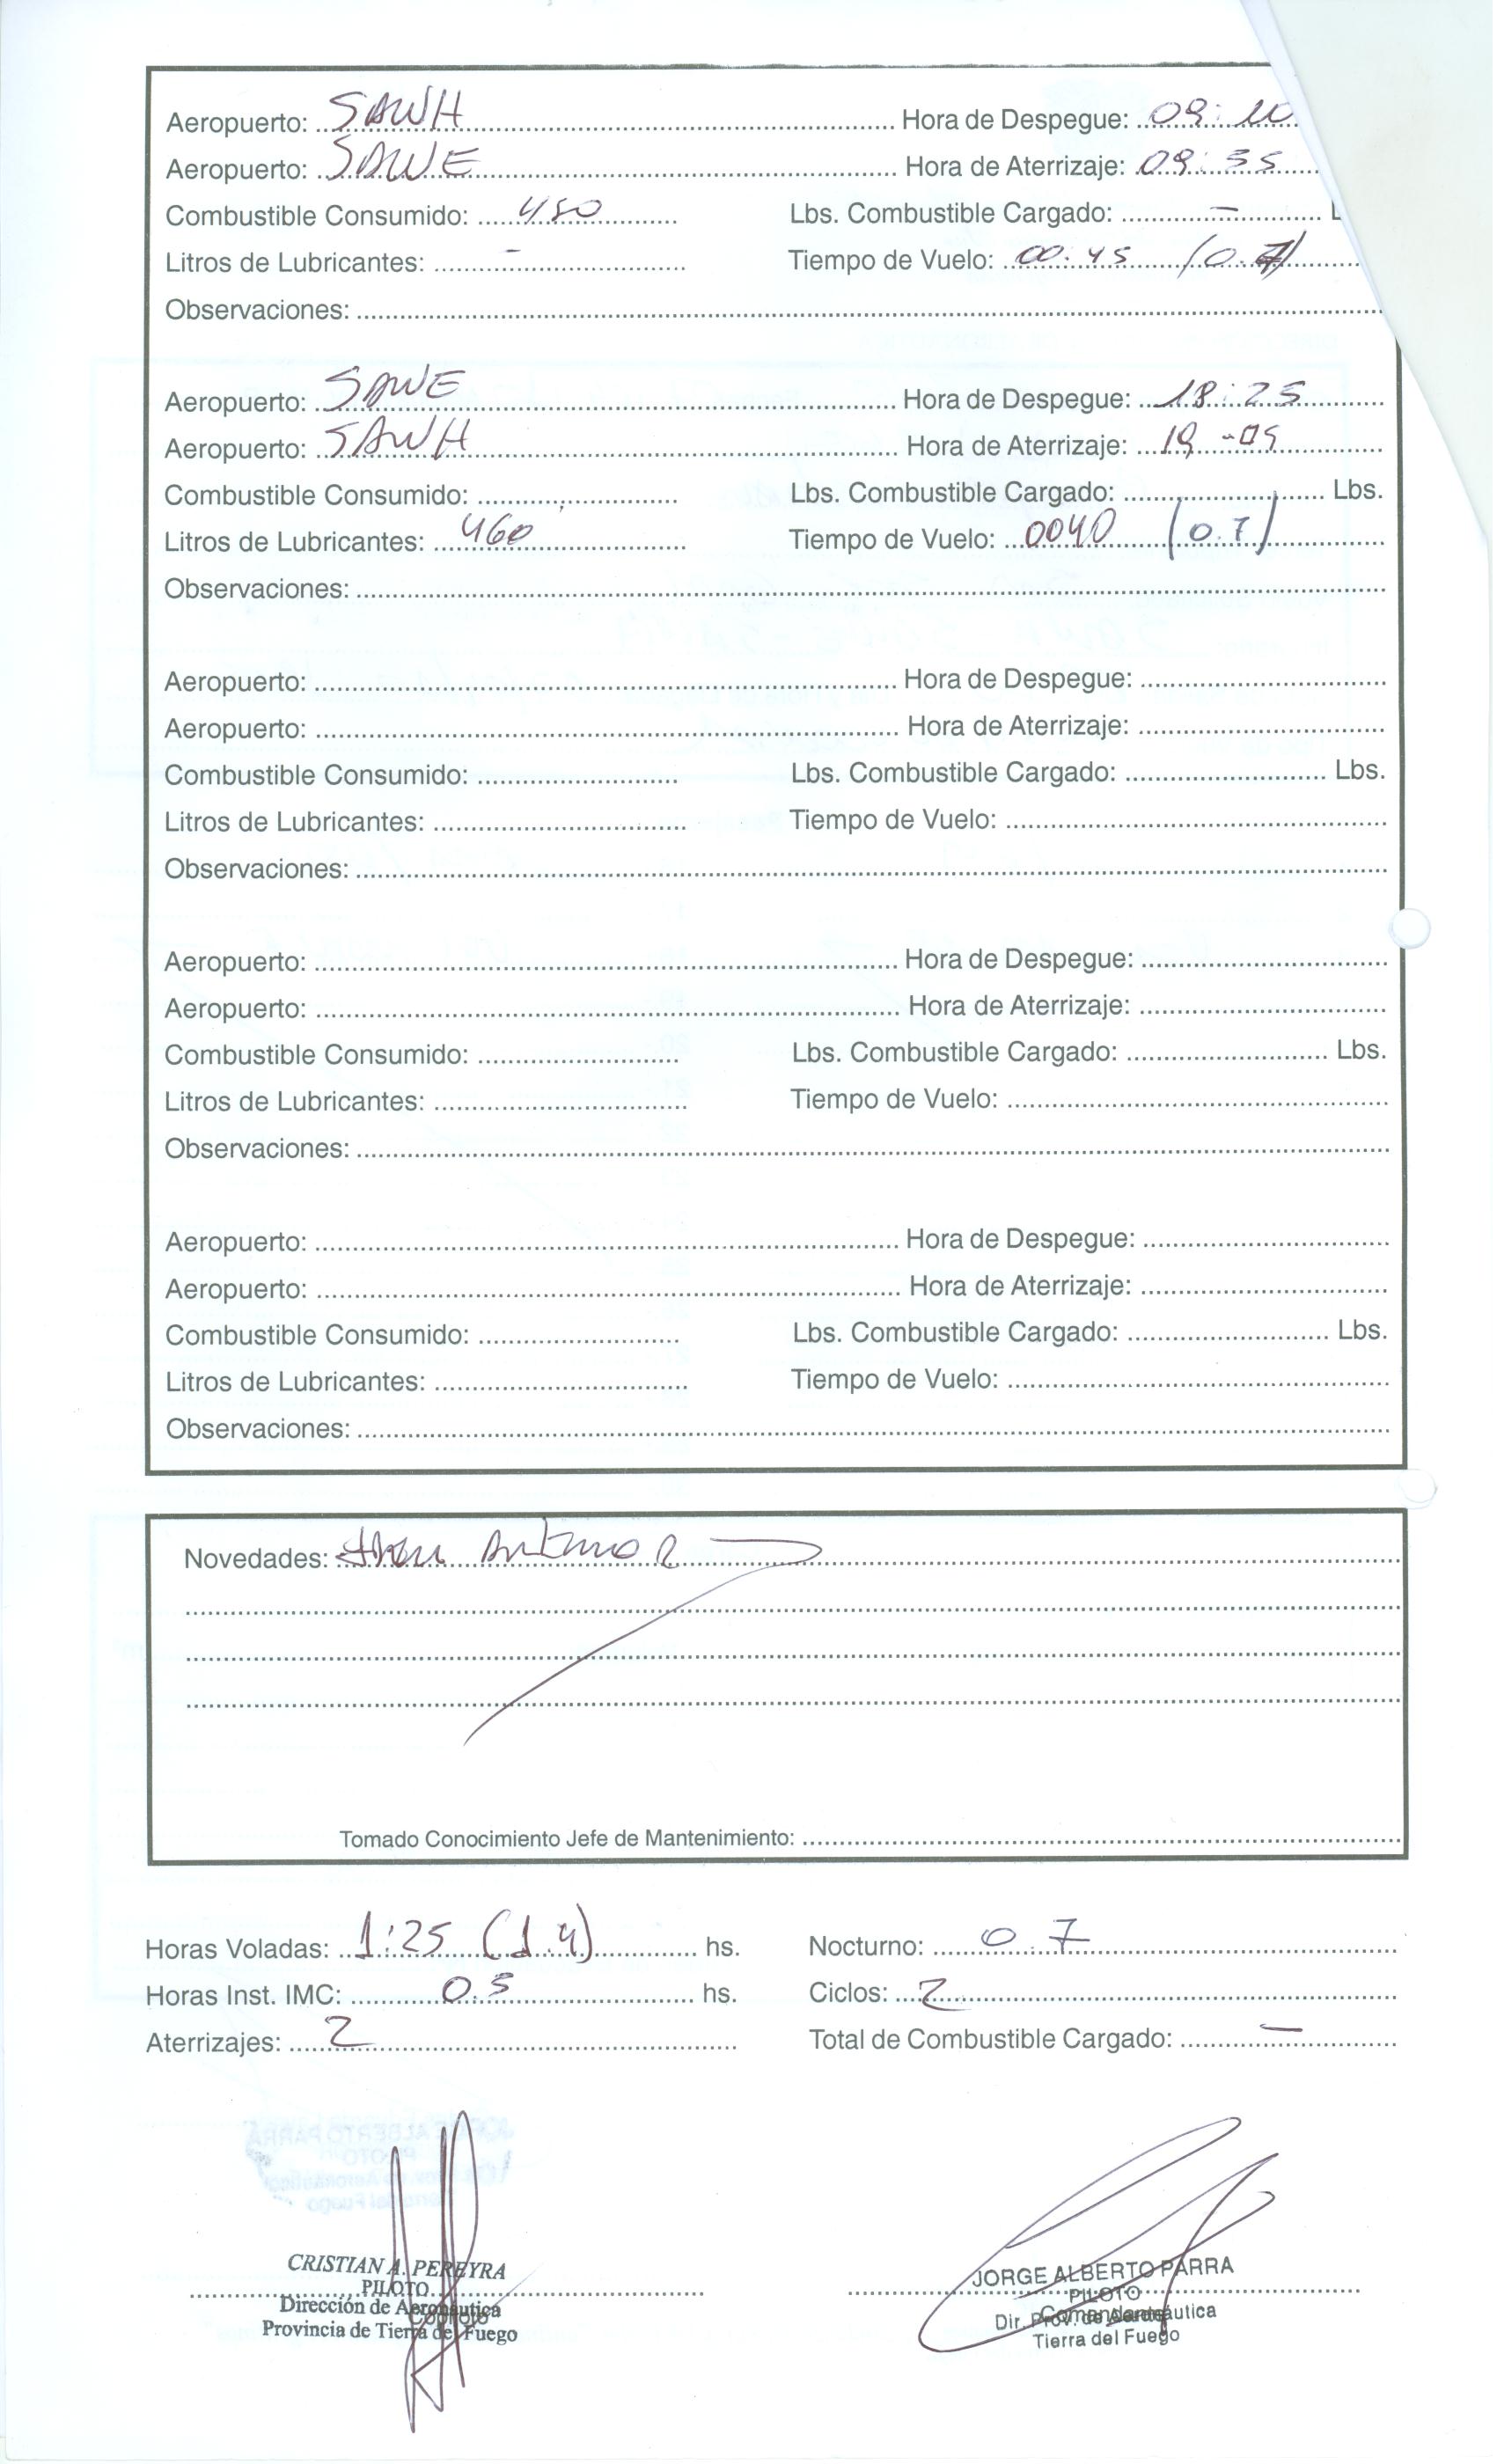 Aeropuerto: SAWH Hora de Despegue: 09:10
Aeropuerto: SAWE Hora de Aterrizaje: 09:55
Combustible Consumido: 450 Lbs. Combustible Cargado: - L
Litros de Lubricantes: - Tiempo de Vuelo: 00:45 (0.7)
Observaciones:
Aeropuerto: SAWE Hora de Despegue: 18:25
Aeropuerto: SAWH Hora de Aterrizaje: 19-05
Combustible Consumido: Lbs. Combustible Cargado: Lbs.
Litros de Lubricantes: 460 Tiempo de Vuelo: 0040 (0.7)
Observaciones:
Aeropuerto: Hora de Despegue:
Aeropuerto: Hora de Aterrizaje:
Combustible Consumido: Lbs. Combustible Cargado: Lbs.
Litros de Lubricantes: Tiempo de Vuelo:
Observaciones:
Aeropuerto: Hora de Despegue:
Aeropuerto: Hora de Aterrizaje:
Combustible Consumido: Lbs. Combustible Cargado: Lbs.
Litros de Lubricantes: Tiempo de Vuelo:
Observaciones:
Aeropuerto: Hora de Despegue:
Aeropuerto: Hora de Aterrizaje:
Combustible Consumido: Lbs. Combustible Cargado: Lbs.
Litros de Lubricantes: Tiempo de Vuelo:
Observaciones:
Novedades:
Tomado Conocimiento Jefe de Mantenimiento:
Horas Voladas: 1:25 (1.4) hs. Nocturno: 0.7
Horas Inst. IMC: 0.5 hs. Ciclos: 2
Aterrizajes: 2 Total de Combustible Cargado: -
CRISTIAN A. PEREYRA
PILOTO
Dirección de Aeronáutica
Copiloto
Provincia de Tierra del Fuego
JORGE ALBERTO PARRA
PILOTO
Comandante
Dir. Prov. de Aeronáutica
Tierra del Fuego